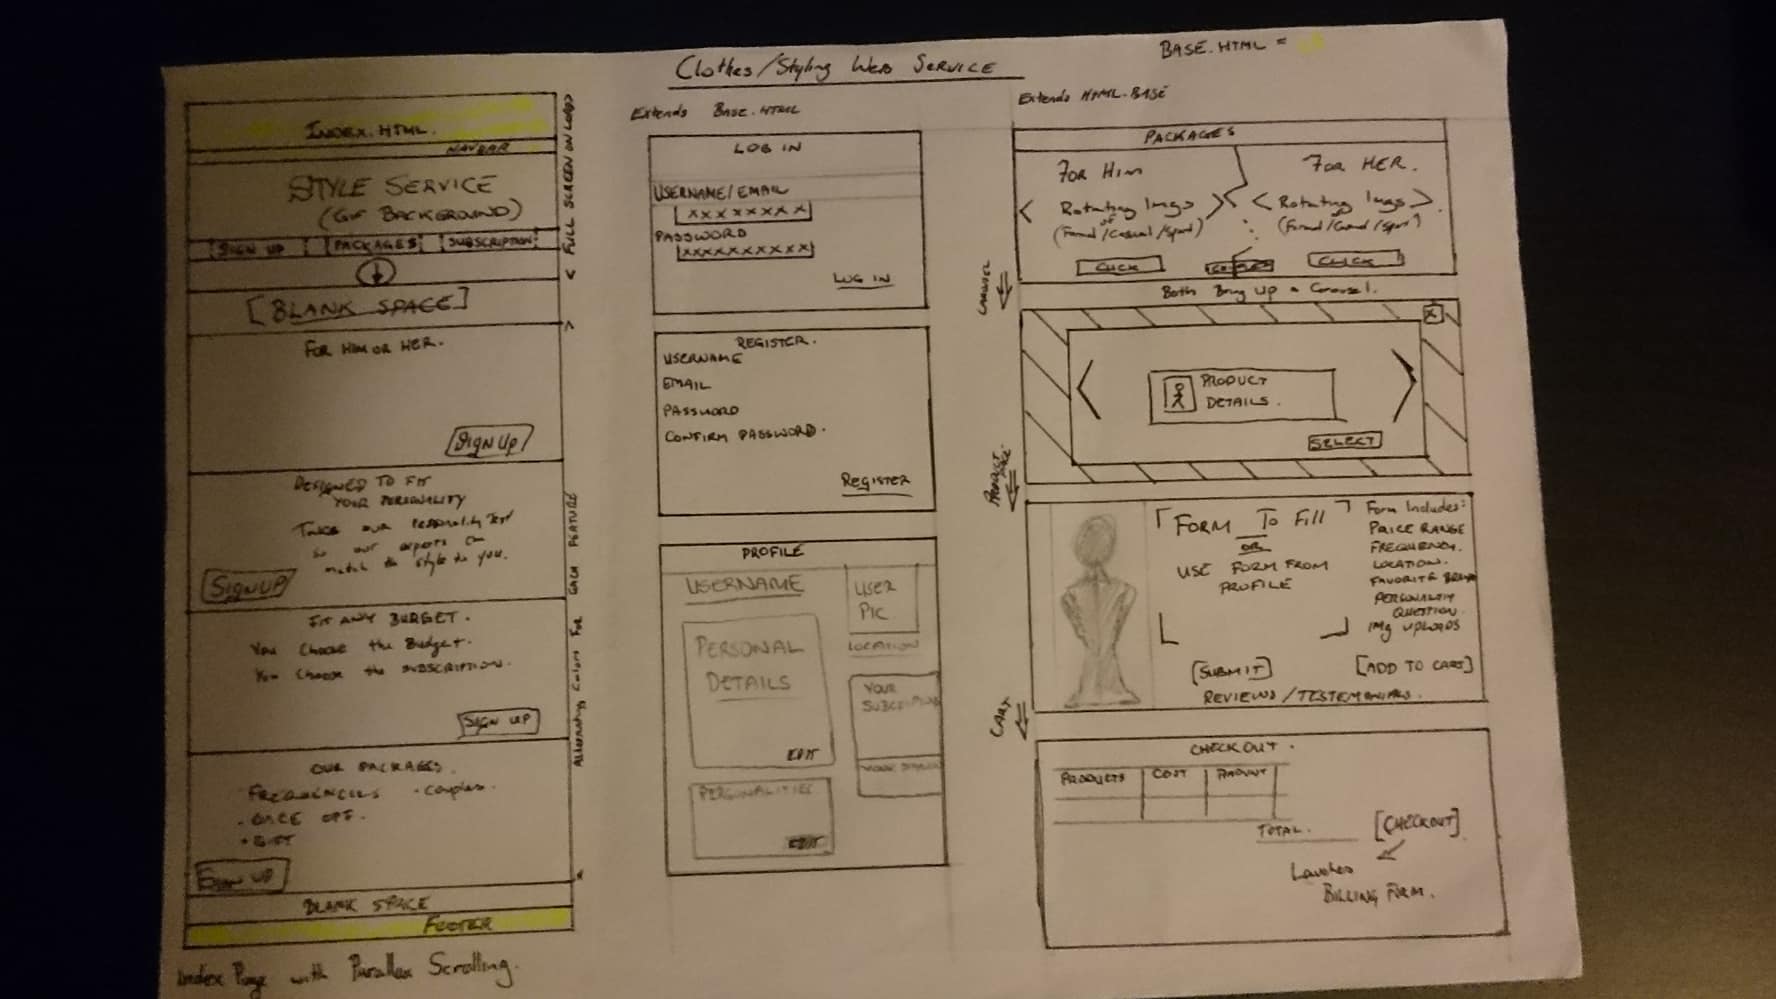 Clothes/Styling Web Service
BASE.HTML =
INDEX.HTML.
NAVBAR
STYLE SERVICE
(GIF BACKGROUND)
[SIGN UP] [PACKAGES] [SUBSCRIPTION]
[BLANK SPACE]
FOR HIM OR HER.
SIGN UP
DESIGNED TO FIT
YOUR PERSONALITY
Take our Personality Test
so our experts can
match the style to you.
SIGN UP
FIT ANY BUDGET.
You Choose the Budget.
You Choose the SUBSCRIPTION.
SIGN UP
OUR PACKAGES.
FREQUENCIES
- Couples.
- ONCE OFF.
- GIFT
SIGN UP
BLANK SPACE
FOOTER
Index Page with Parallax Scrolling.
< FULL SCREEN ON LOAD>
Alternating Colors For EACH FEATURE
Extends BASE.HTML
LOG IN
USERNAME/EMAIL
xxxxxxxx
PASSWORD
xxxxxxxxxx
LOG IN
REGISTER.
USERNAME
EMAIL
PASSWORD
CONFIRM PASSWORD.
REGISTER
PROFILE
USERNAME
USER
PIC
LOCATION
PERSONAL
DETAILS
EDIT
YOUR
PERSONALITIES
EDIT
Extends HTML.BASE
PACKAGES
FOR HIM
FOR HER.
< Rotating Imgs >
of
(Formal/Casual/Sport)
< Rotating Imgs >
of
(Formal/Casual/Sport)
CLICK
CLICK
Both Bring up a Carousel.
CAROUSEL
X
PRODUCT
DETAILS.
SELECT
PRODUCT
PAGE.
FORM TO Fill
OR
USE FORM FROM
PROFILE
Form Includes:
PRICE RANGE
FREQUENCY.
LOCATION.
FAVORITE BRAND
PERSONALITY
QUESTION.
IMG UPLOADS
[SUBMIT]
[ADD TO CART]
REVIEWS/TESTEMONIALS.
CART
CHECKOUT.
PRODUCTS COST AMOUNT
TOTAL.
[CHECKOUT]
Launches
BILLING FORM.